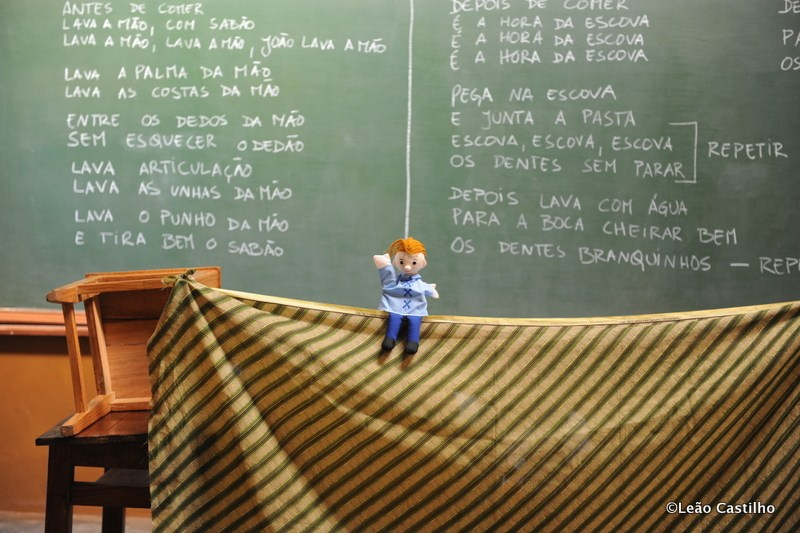 ANTES DE COMER
LAVA A MÃO, COM SABÃO
LAVA A MÃO, LAVA A MÃO, JOÃO LAVA A MÃO
LAVA A PALMA DA MÃO
LAVA AS COSTAS DA MÃO
ENTRE OS DEDOS DA MÃO
SEM ESQUECER O DEDÃO
LAVA ARTICULAÇÃO
LAVA AS UNHAS DA MÃO
LAVA O PUNHO DA MÃO
E TIRA BEM O SABÃO
DEPOIS DE COMER
É A HORA DA ESCOVA
É A HORA DA ESCOVA
É A HORA DA ESCOVA
PEGA NA ESCOVA
E JUNTA A PASTA
ESCOVA, ESCOVA, ESCOVA
OS DENTES SEM PARAR
REPETIR
DEPOIS LAVA COM ÁGUA
PARA A BOCA CHEIRAR BEM
OS DENTES BRANQUINHOS — REP
DE
PA
OS
©Leão Castilho